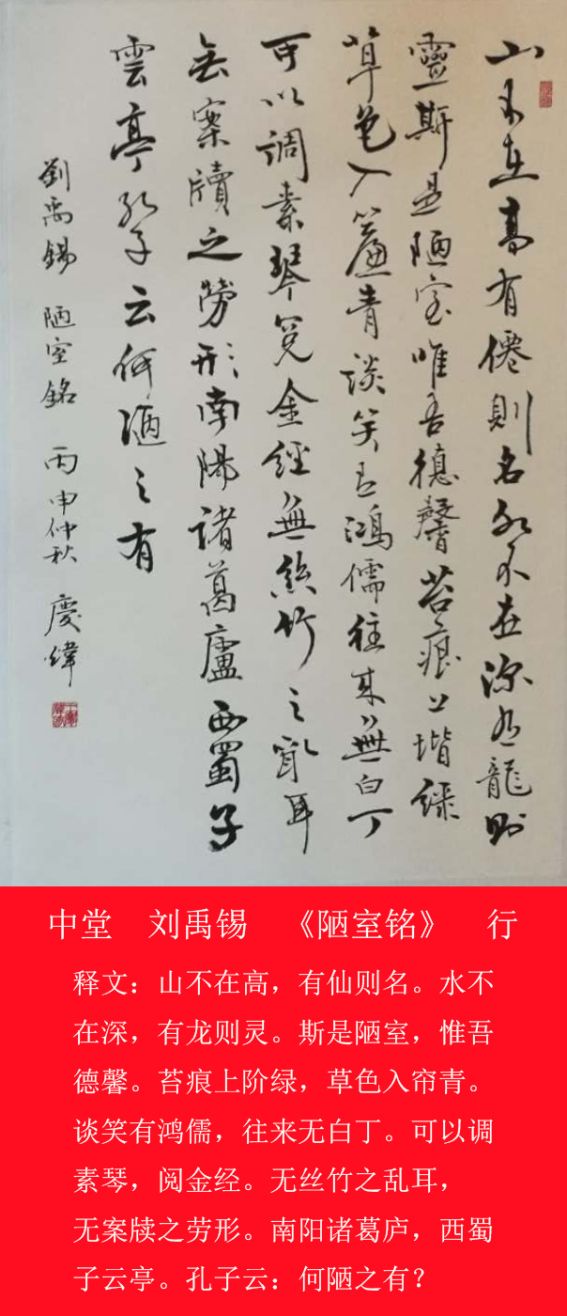 山不在高有僊則名水不在深有龍則
靈斯是陋室唯吾德馨苔痕上堦緑
草色入簾青談笑有鴻儒往来無白丁
可以調素琴閱金經無絲竹之亂耳
無案牘之勞形南陽諸葛廬西蜀子
雲亭孔子云何陋之有
劉禹錫 陋室銘 丙申仲秋 慶緯
中堂 刘禹锡 《陋室铭》 行
释文：山不在高，有仙则名。水不
在深，有龙则灵。斯是陋室，惟吾
德馨。苔痕上阶绿，草色入帘青。
谈笑有鸿儒，往来无白丁。可以调
素琴，阅金经。无丝竹之乱耳，
无案牍之劳形。南阳诸葛庐，西蜀
子云亭。孔子云：何陋之有？